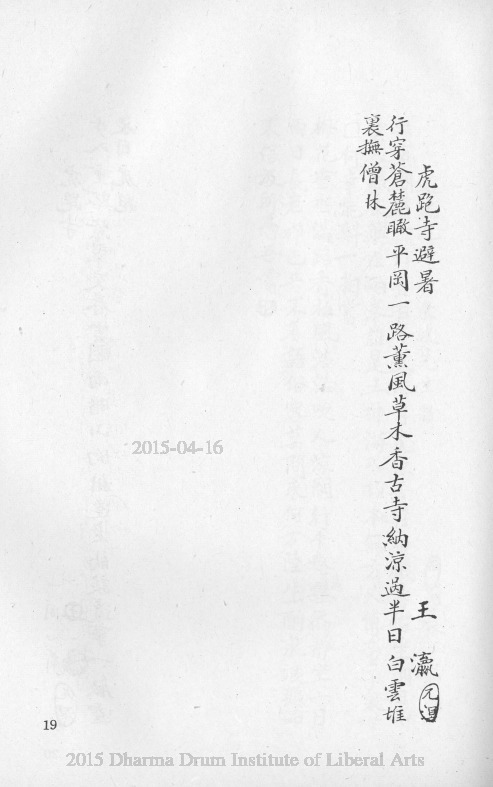 虎跑寺避暑
王瀛
行穿蒼麓瞰平岡一路薰風草木香古寺納涼過半日白雲堆
裏撫僧牀
2015-04-16
19
2015 Dharma Drum Institute of Liberal Arts